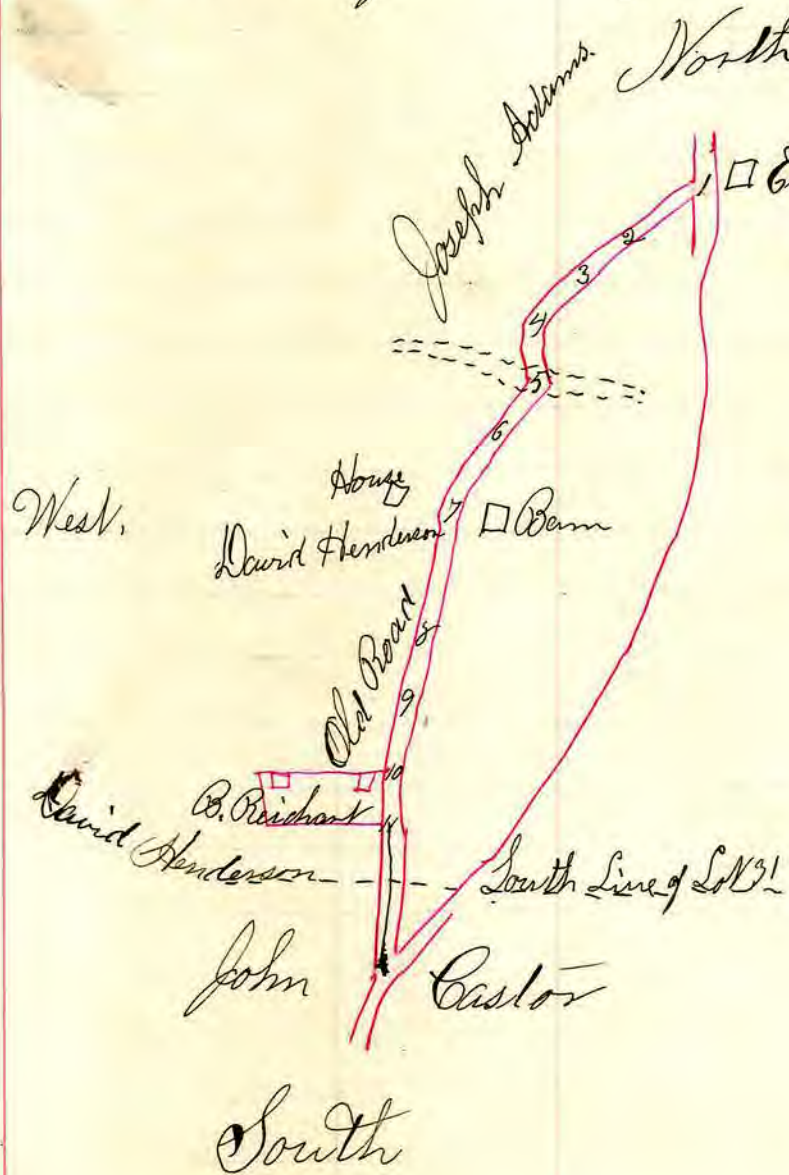 North
Joseph Adams.
1
2
3
4
5
6
House
West.
7
Barn
David Henderson
8
Old Road
9
10
B. Reichart
11
David Henderson
South Line of Lot 31
John Castor
South